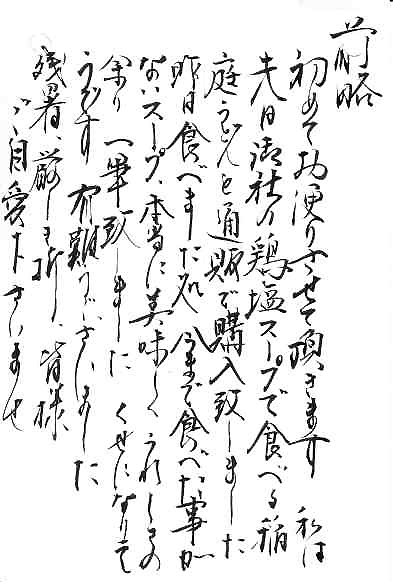 前略
初めてお便りさせて頂きます 私は
先日御社の鶏塩スープで食べる稲
庭うどんを通販で購入致しました
昨日食べました処、今まで食べた事が
ないスープ、本当に美味しくうれしさの
余り一筆致しました くせになりそ
うです 有難うございました
残暑、厳しき折、皆様
ご自愛下さいませ